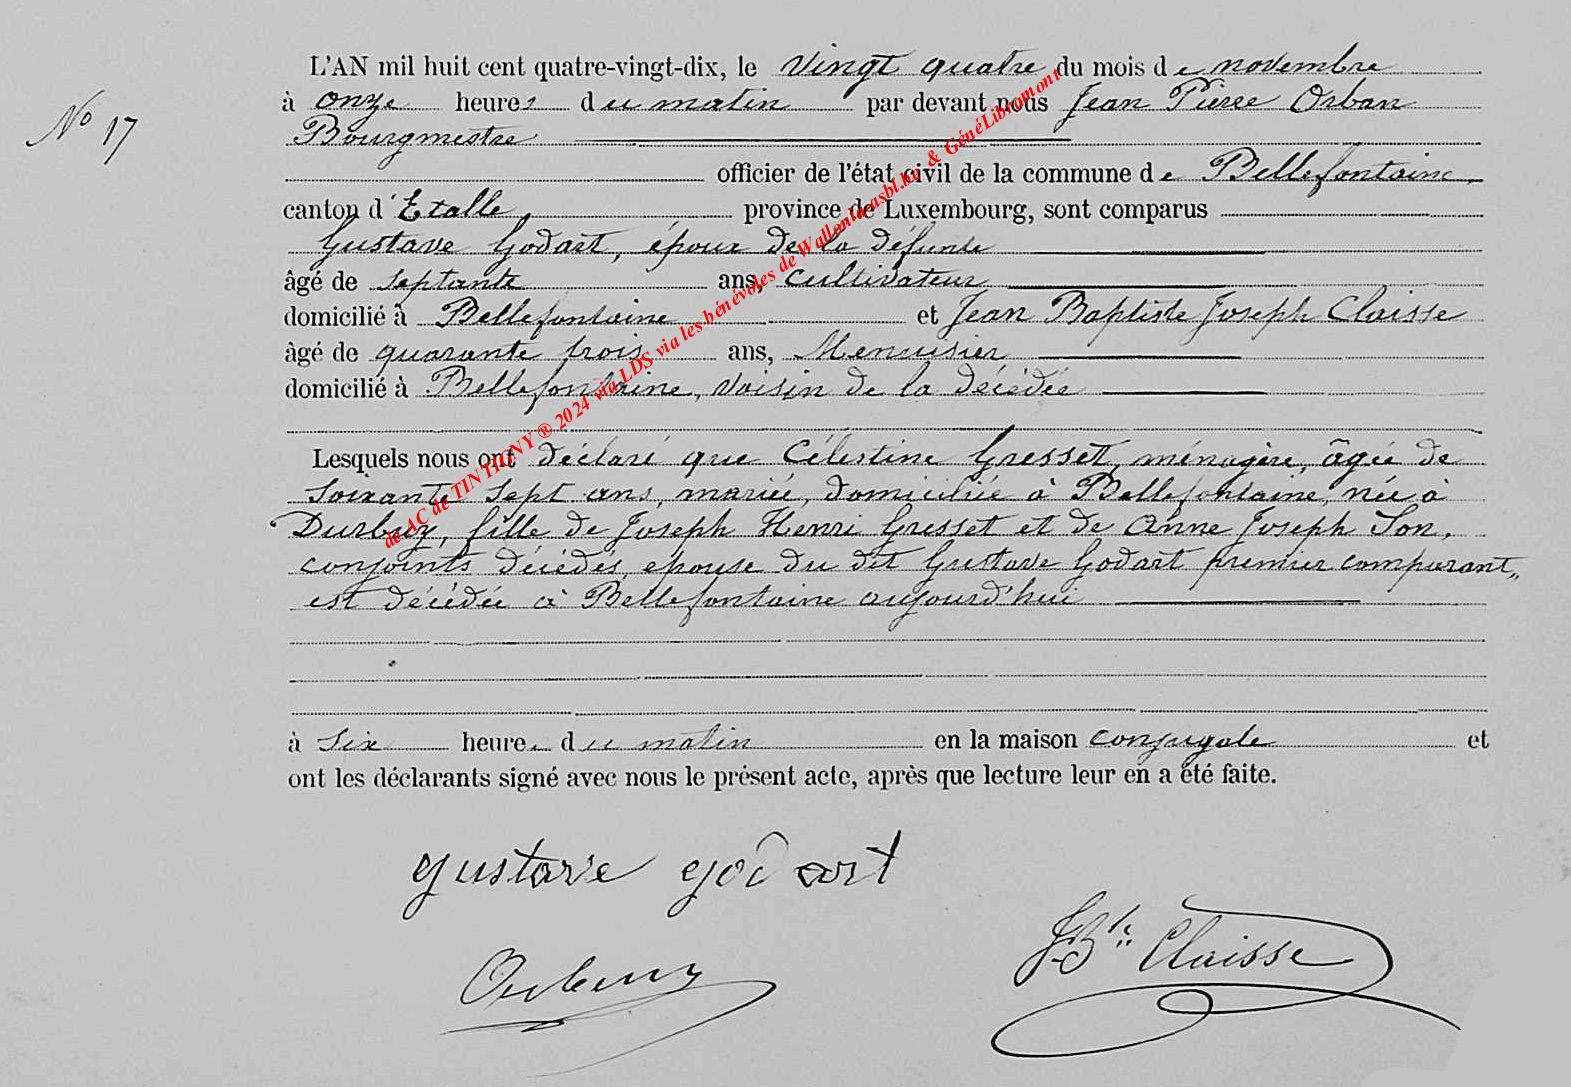 No 17
L'AN mil huit cent quatre-vingt-dix, le vingt quatre du mois de novembre
à onze heures du matin par devant nous Jean Pierre Orban
Bourgmestre
officier de l'état civil de la commune de Bellefontaine,
canton d'Etalle, province de Luxembourg, sont comparus
Gustave Godart, époux de la défunte
âgé de septante ans, cultivateur
domicilié à Bellefontaine et Jean Baptiste Joseph Claisse
âgé de quarante trois ans, Menuisier
domicilié à Bellefontaine, voisin de la décédée
Lesquels nous ont déclaré que Célestine Gresset, ménagère, âgée de
soixante sept ans, mariée, domiciliée à Bellefontaine, née à
Durbuy, fille de Joseph Henri Gresset et de Anne Joseph Son,
conjoints décédés, épouse du dit Gustave Godart premier comparant,
est décédée à Bellefontaine aujourd'hui
à six heures du matin en la maison conjugale et
ont les déclarants signé avec nous le présent acte, après que lecture leur en a été faite.
gustave godart
JBte Claisse
Orban
de AC de TINTIGNY ® 2024 via LDS via les bénévoles de Wallonia-asbl.be & GénéLibramont